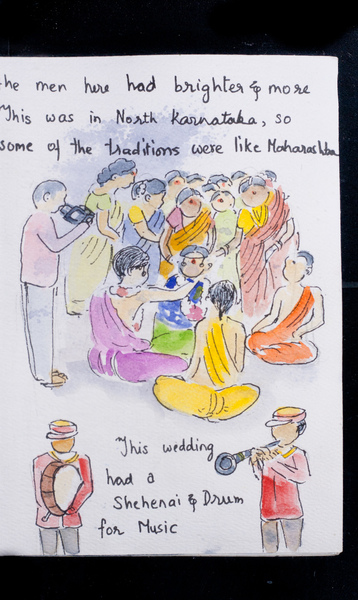 he men here had brighter & more
This was in North Karnataka, so
some of the traditions were like Maharashtra
This wedding
had a
Shehenai & Drum
for Music